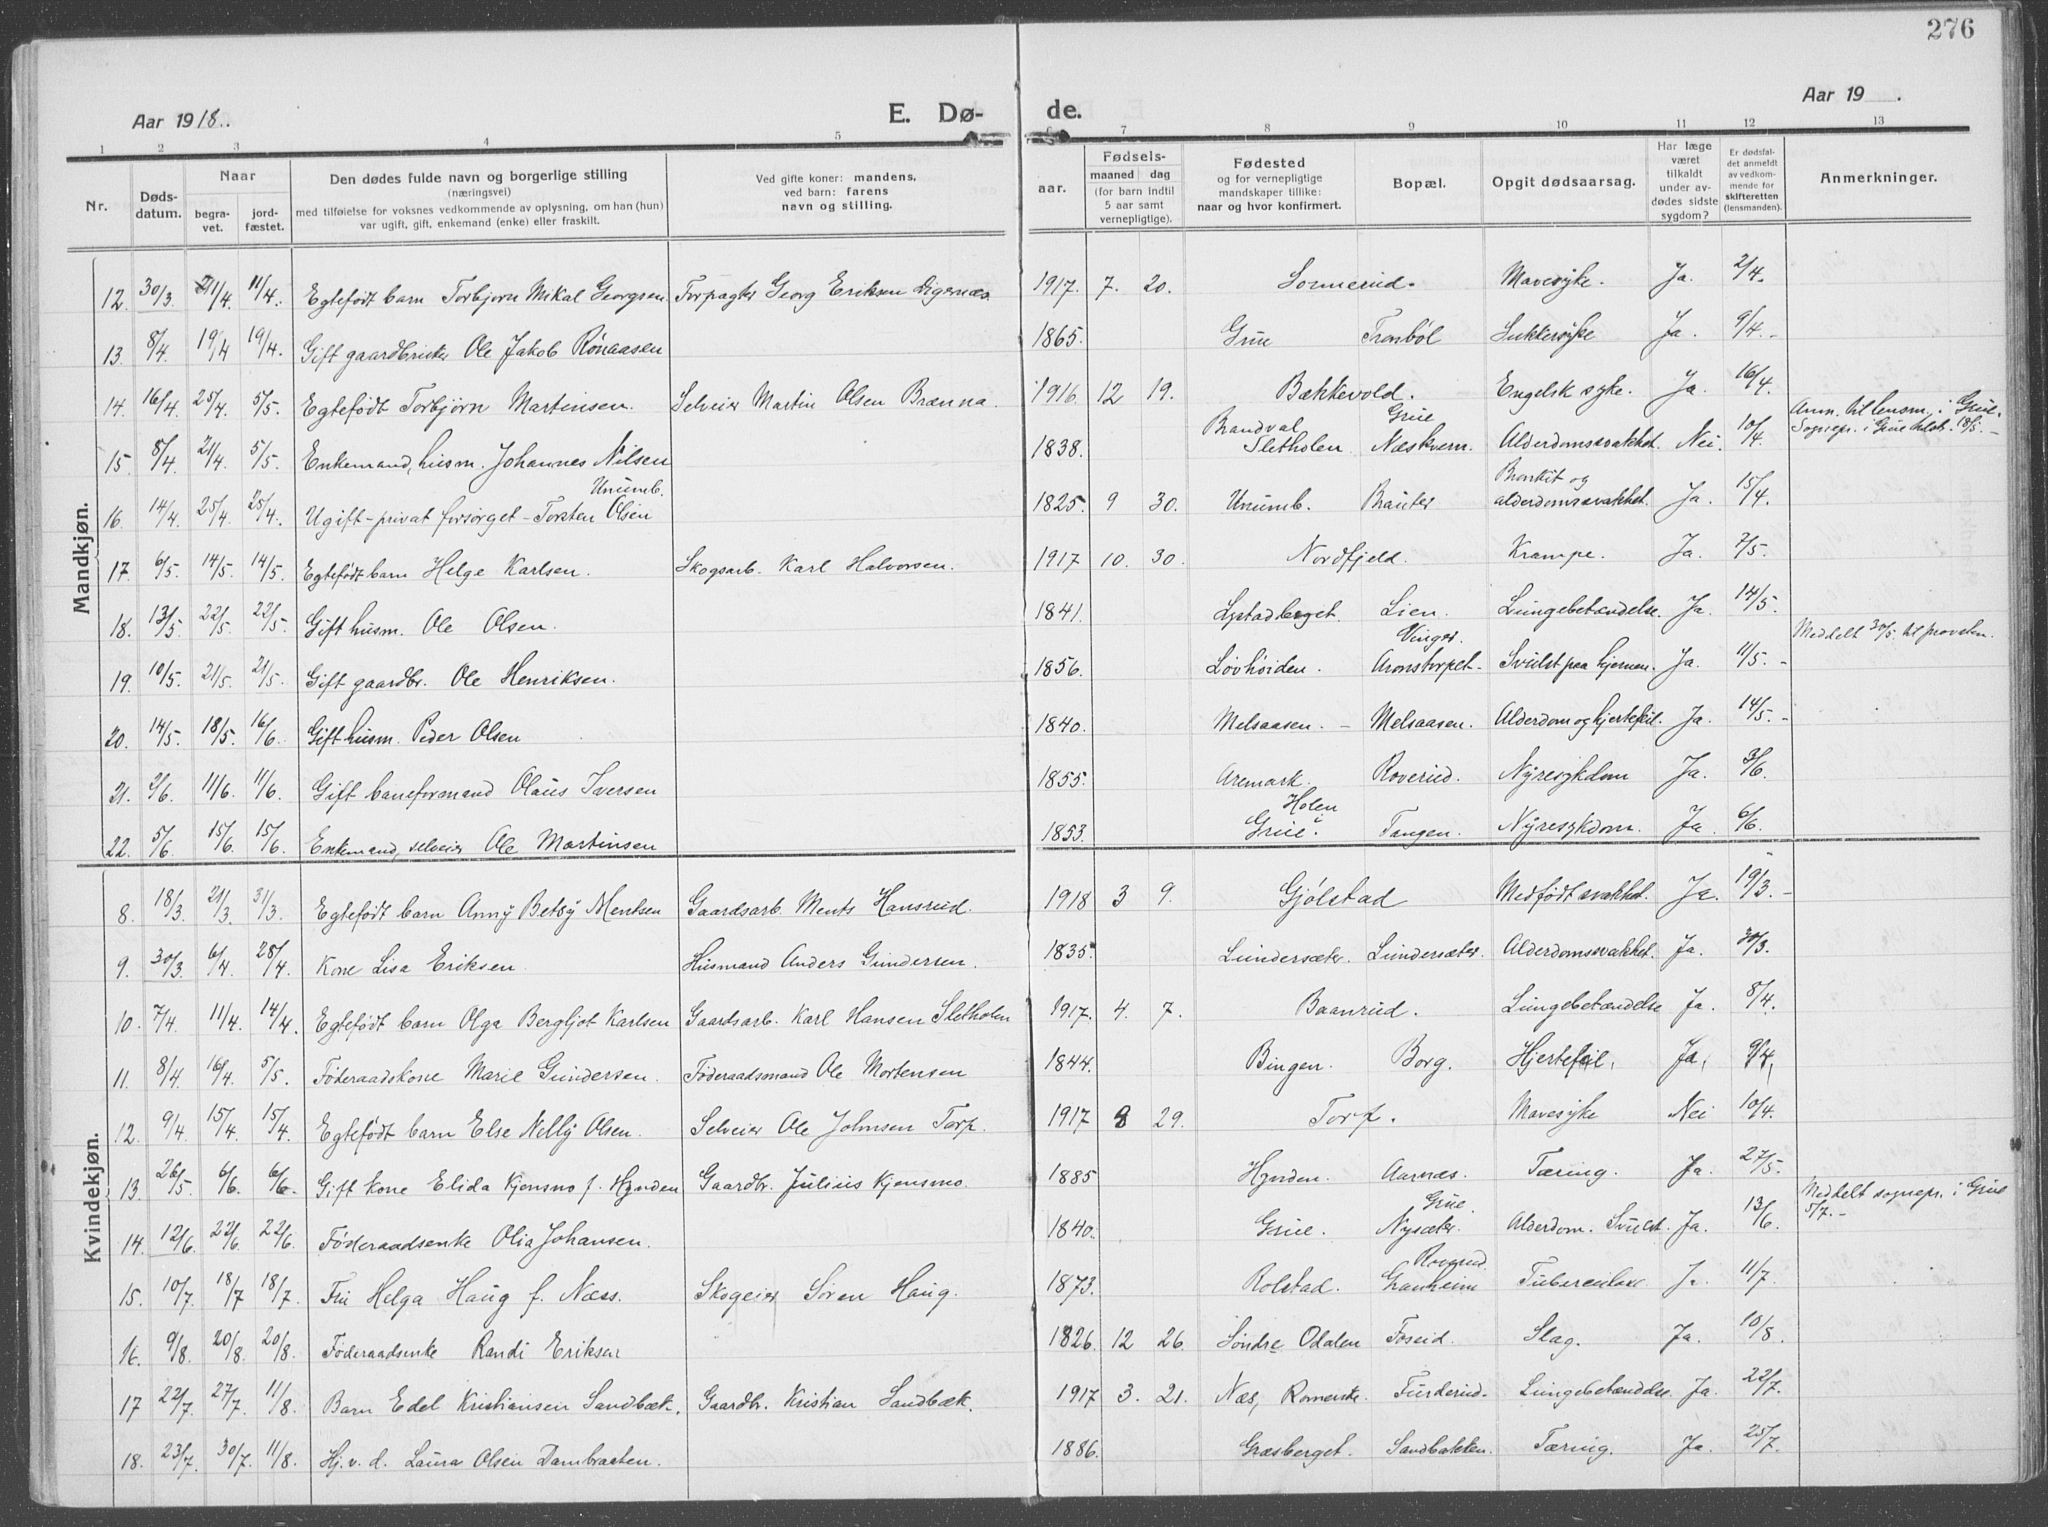 276
Aar 1918.
E. Dø-
de.
Aar 19 .
1 2 3 4 5 6 7 8 9 10 11 12 13
Nr.
Døds-
datum.
Naar
begra-
vet.
jord-
fæstet.
Den dødes fulde navn og borgerlige stilling
(næringsvei)
med tilføielse for voksnes vedkommende av oplysning, om han (hun)
var ugift, gift, enkemand (enke) eller fraskilt.
Ved gifte koner: mandens,
ved barn: farens
navn og stilling.
Fødsels-
aar.
maaned dag
(for barn indtil
5 aar samt
vernepligtige).
Fødested
og for vernepligtige
mandskaper tillike:
naar og hvor konfirmert.
Bopæl.
Opgit dødsaarsag.
Har læge
været
tilkaldt
under av-
dødes sidste
sygdom?
Er dødsfal-
det anmeldt
av vedkom-
mende for
skifteretten
(lensmanden).
Anmerkninger.
Mandkjøn.
12. 30/3. 21/4. 11/4. Egtefødt barn Torbjørn Mikal Georgsen Forpagter Georg Eriksen Digernæs. 1917. 7. 20. Sormerud. Mavesyke. Ja. 2/4.
13. 8/4. 19/4 19/4. Gift gaardbruker Ole Jakob Rønaasen 1865. Grue Tronbøl Sukkersyke Ja. 9/4.-
14. 16/4. 25/4. 5/5. Egtefødt Torbjørn Martinsen. Selveier Martin Olsen Brænna. 1916. 12 19. Bækkevold. Engelsk syke. Ja. 16/4.
15. 8/4. 21/4. 5/5. Enkemand, husm. Johannes Nilsen 1838. Brandval Sletholen Grue Næskvern. Alderdomssvakhet. Nei. 10/4. Anm. til lensm. i Grue. Sognepr. i Grue tilsk. 18/5.-
16. 14/4. 25/4. 25/4. Ugift - privat forsørget - Torsten Olsen Unumb. 1825. 9 30. Unumb. Brauter Bronkit og alderdomssvakhet. Ja. 15/4.
17. 6/5. 14/5. 14/5. Egtefødt barn Helge Karlsen. Skogsarb. Karl Halvorsen. 1917 10. 30. Nordfjeld. Krampe. Ja. 7/5.
18. 13/5. 22/5. 22/5. Gift husm. Ole Olsen. 1841. Lystadberget. Lien. Lungebetændelse. Ja. 14/5.
19. 10/5. 21/5. 21/5. Gift gaardbr. Ole Henriksen. 1856. Løvhøiden. Vinger. Aronstorpet. Svulst paa hjernen. Ja. 11/5.- Meddelt 30/5. til provsten.
20. 14/5. 18/5. 16/6. Gift husm. Peder Olsen 1840. Melsaasen. - Melsaasen. Alderdom og hjertefeil. Ja. 14/5.-
21. 2/6. 11/6. 11/6. Gift baneformand Olaus Iversen 1855. Aremark. Roverud. Nyresykdom Ja. 3/6.
22. 5/6. 15/6. 15/6. Enkemand, selveier Ole Martinsen 1853. Holen i Grue. Tangen. Nyresykdom. Ja. 6/6.
Kvindekjøn.
8. 18/3. 21/3. 31/3. Egtefødt barn Anny Betsy Mentsen Gaardsarb. Ments Hansrud. 1918 3 9. Gjølstad Medfødt svakhet. Ja. 19/3.-
9. 30/3. 6/4. 28/4. Kone Lisa Eriksen. Husmand Anders Gundersen. 1835. Lundersæter. Lundersæter. Alderdomssvakhet. Ja. 30/3.
10. 7/4. 11/4. 14/4. Egtefødt barn Olga Bergljot Karlsen Gaardsarb. Karl Hansen Sletholen 1917. 4. 7. Baanrud. Lungebetændelse Ja. 8/4.
11. 8/4. 16/4. 5/5. Føderaadskone Marie Gundersen. Føderaadsmand Ole Mortensen 1844. Bingen. Borg. Hjertefeil. Ja. 9/4.
12. 9/4. 15/4. 15/4. Egtefødt barn Else Nelly Olsen. Selveier Ole Johnsen Torp. 1917 8 29. Torp. Mavesyke Nei 10/4.
13. 26/5. 6/6. 6/6. Gift kone Elida Kjensmo f. Hynden Gaardbr. Julius Kjensmo. 1885 Hynden. Aarnæs. Tæring. Ja. 27/5.
14. 12/6. 22/6. 22/6. Føderaadsenke Olia Johansen. 1840. Grue. Grue. Nysæter. Alderdom. Svulst. Ja. 13/6. Meddelt sognepr. i Grue 5/7.-
15. 10/7. 18/7 18/7. Fru Helga Haug f. Næss. Skogeier Søren Haug. 1873. Rolstad. Roverud. Granheim Tuberculose Ja. 11/7.
16. 9/8. 20/8. 20/8. Føderaadsenke Randi Eriksen 1826. 12 26. Søndre Odalen Foseid. Slag. Ja. 10/8.
17 22/7. 27/7. 11/8. Barn Edel Kristiansen Sandbæk. Gaardbr. Kristian Sandbæk. 1917 3. 21. Næs, Romerike. Furderud. Lungebetændelse Ja. 22/7.
18. 23/7. 30/7. 11/8. Hj.v.d. Laura Olsen Dambraaten. 1886. Græsberget. Sandbakken. Tæring. Ja. 25/7.